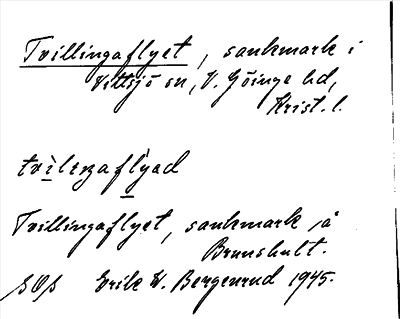 Tvillingaflyet, sankmark i
Vittsjö sn, V. Göinge hd,
Krist. l.
tvìliŋaflýad
Tvillingaflyet, sankmark å
Brunshult.
Erik W. Bergenrud 1945.